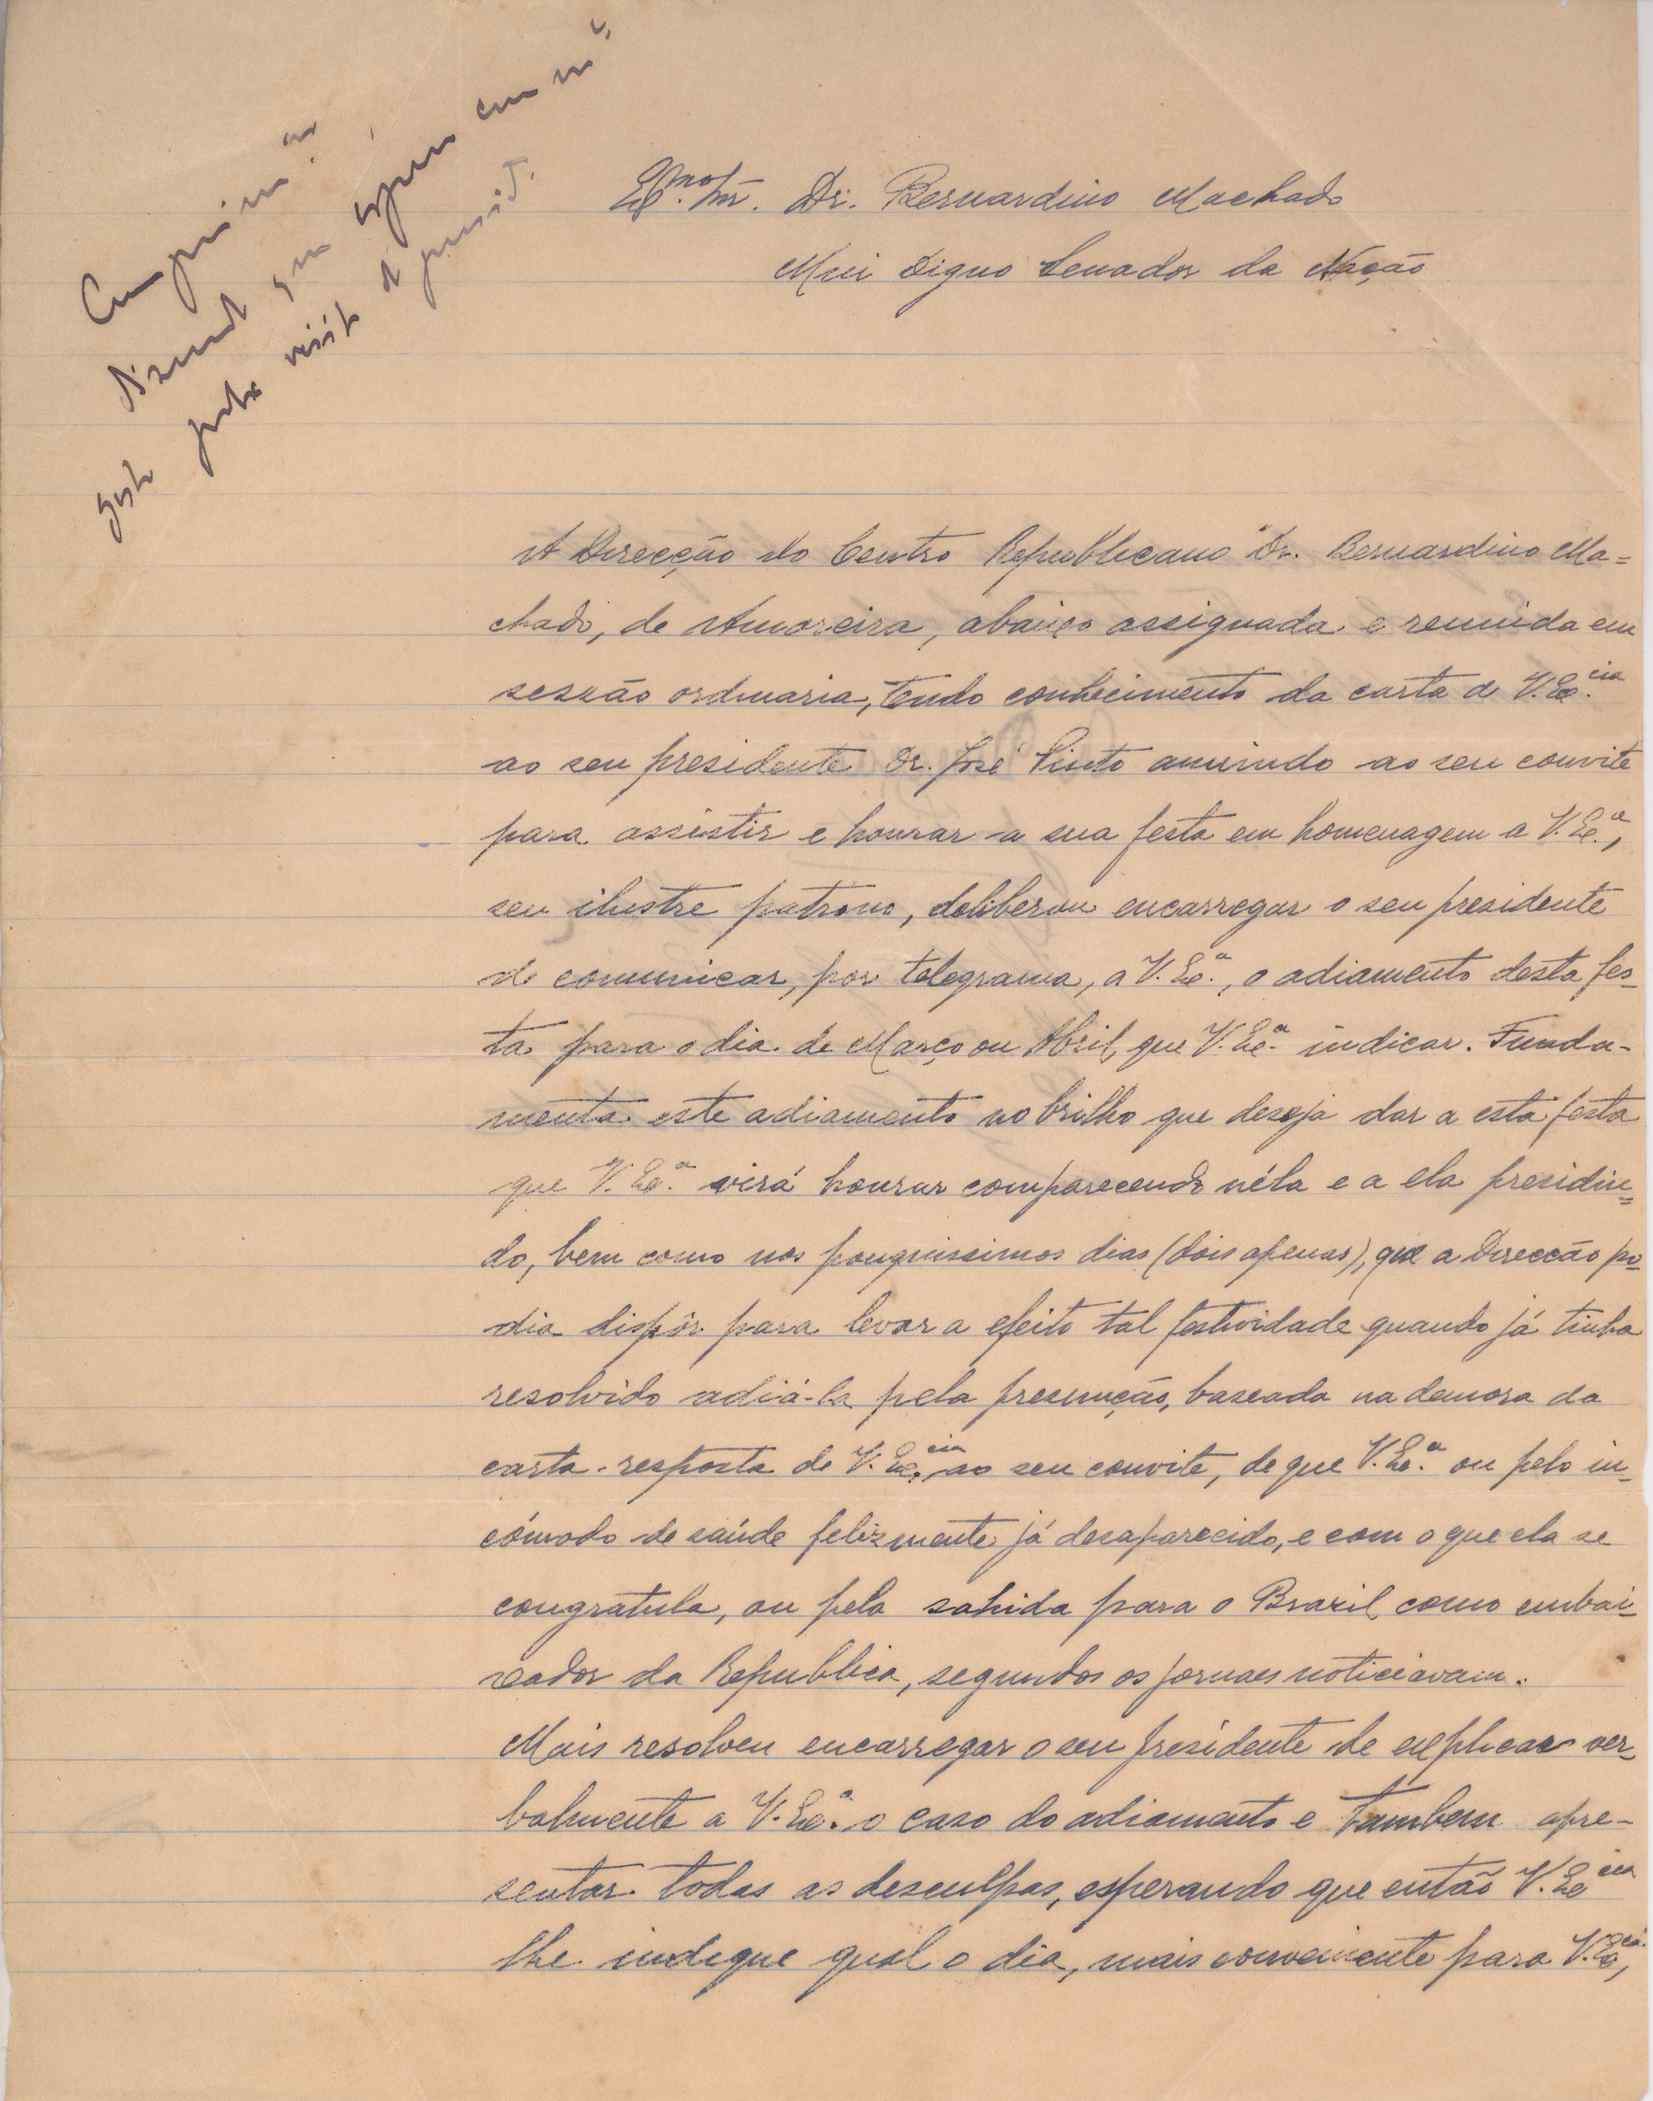 Ex.mo Sr. Dr. Bernardino Machado
Mui Digno Senador da Nação
Cumprim.os
dizendo que espero com m.to
gosto pela visita do presid.
A Direcção do Centro Republicano Dr. Bernardino Ma=
chado, de Amoreira, abaixo assignada e reunida em
sessão ordinaria, tendo conhecimento da carta de V. Ex.cia
ao seu presidente Dr. José Pinto anuindo ao seu convite
para assistir e honrar a sua festa em homenagem a V. Ex.a,
seu ilustre patrono, deliberou encarregar o seu presidente
de comunicar, por telegrama, a V. Ex.a, o adiamento desta fes-
ta para o dia de Março ou Abril, que V. Ex.a indicar. Funda-
menta este adiamento no brilho que deseja dar a esta festa
que V. Ex.a virá honrar comparecendo néla e a ela presidin=
do, bem como nos pouquissimos dias (dois apenas), que a Direcção po=
dia dispôr para levar a efeito tal festividade quando já tinha
resolvido adiá-la pela presunção, baseada na demora da
carta-resposta de V. Ex.cia ao seu convite, de que V. Ex.a ou pelo in-
cómodo de saúde felizmente já desaparecido, e com o que ela se
congratula, ou pela sahida para o Brazil como embai-
xador da Republica, segundos os jornaes noticiavam.
Mais resolveu encarregar o seu presidente de explicar ver-
balmente a V. Ex.a o caso do adiamento e tambem apre-
sentar todas as desculpas, esperando que então V. Ex.cia
lhe indique qual o dia, mais conveniente para V. Ex.cia,